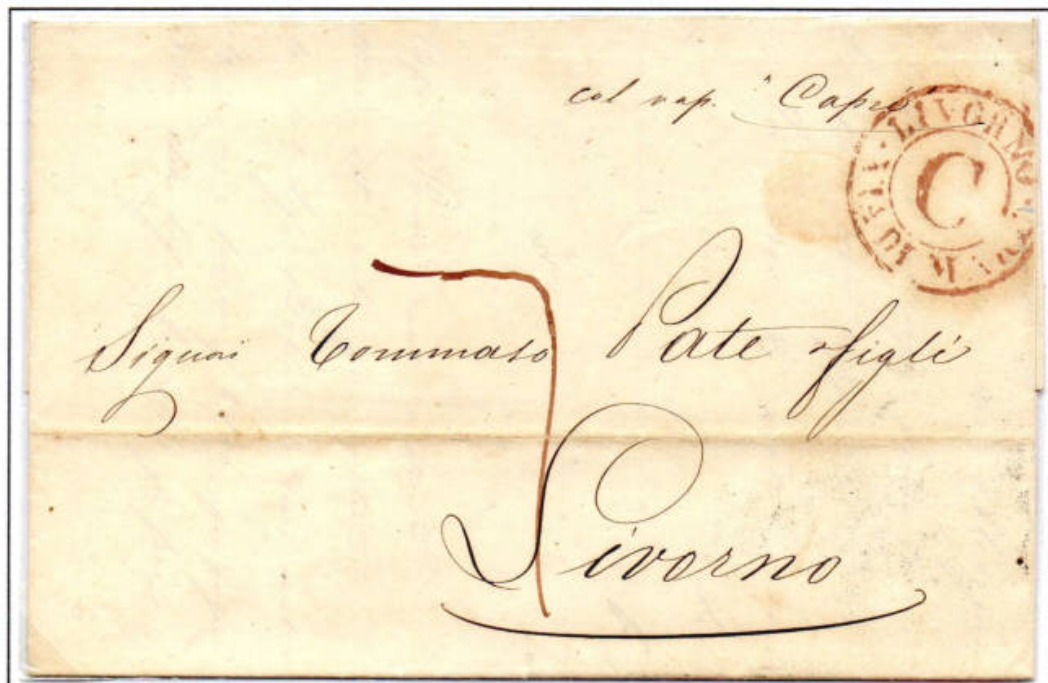 col vap. "Capri"
LIVORNO
C
7
Signori Tommaso Pate figli
Livorno